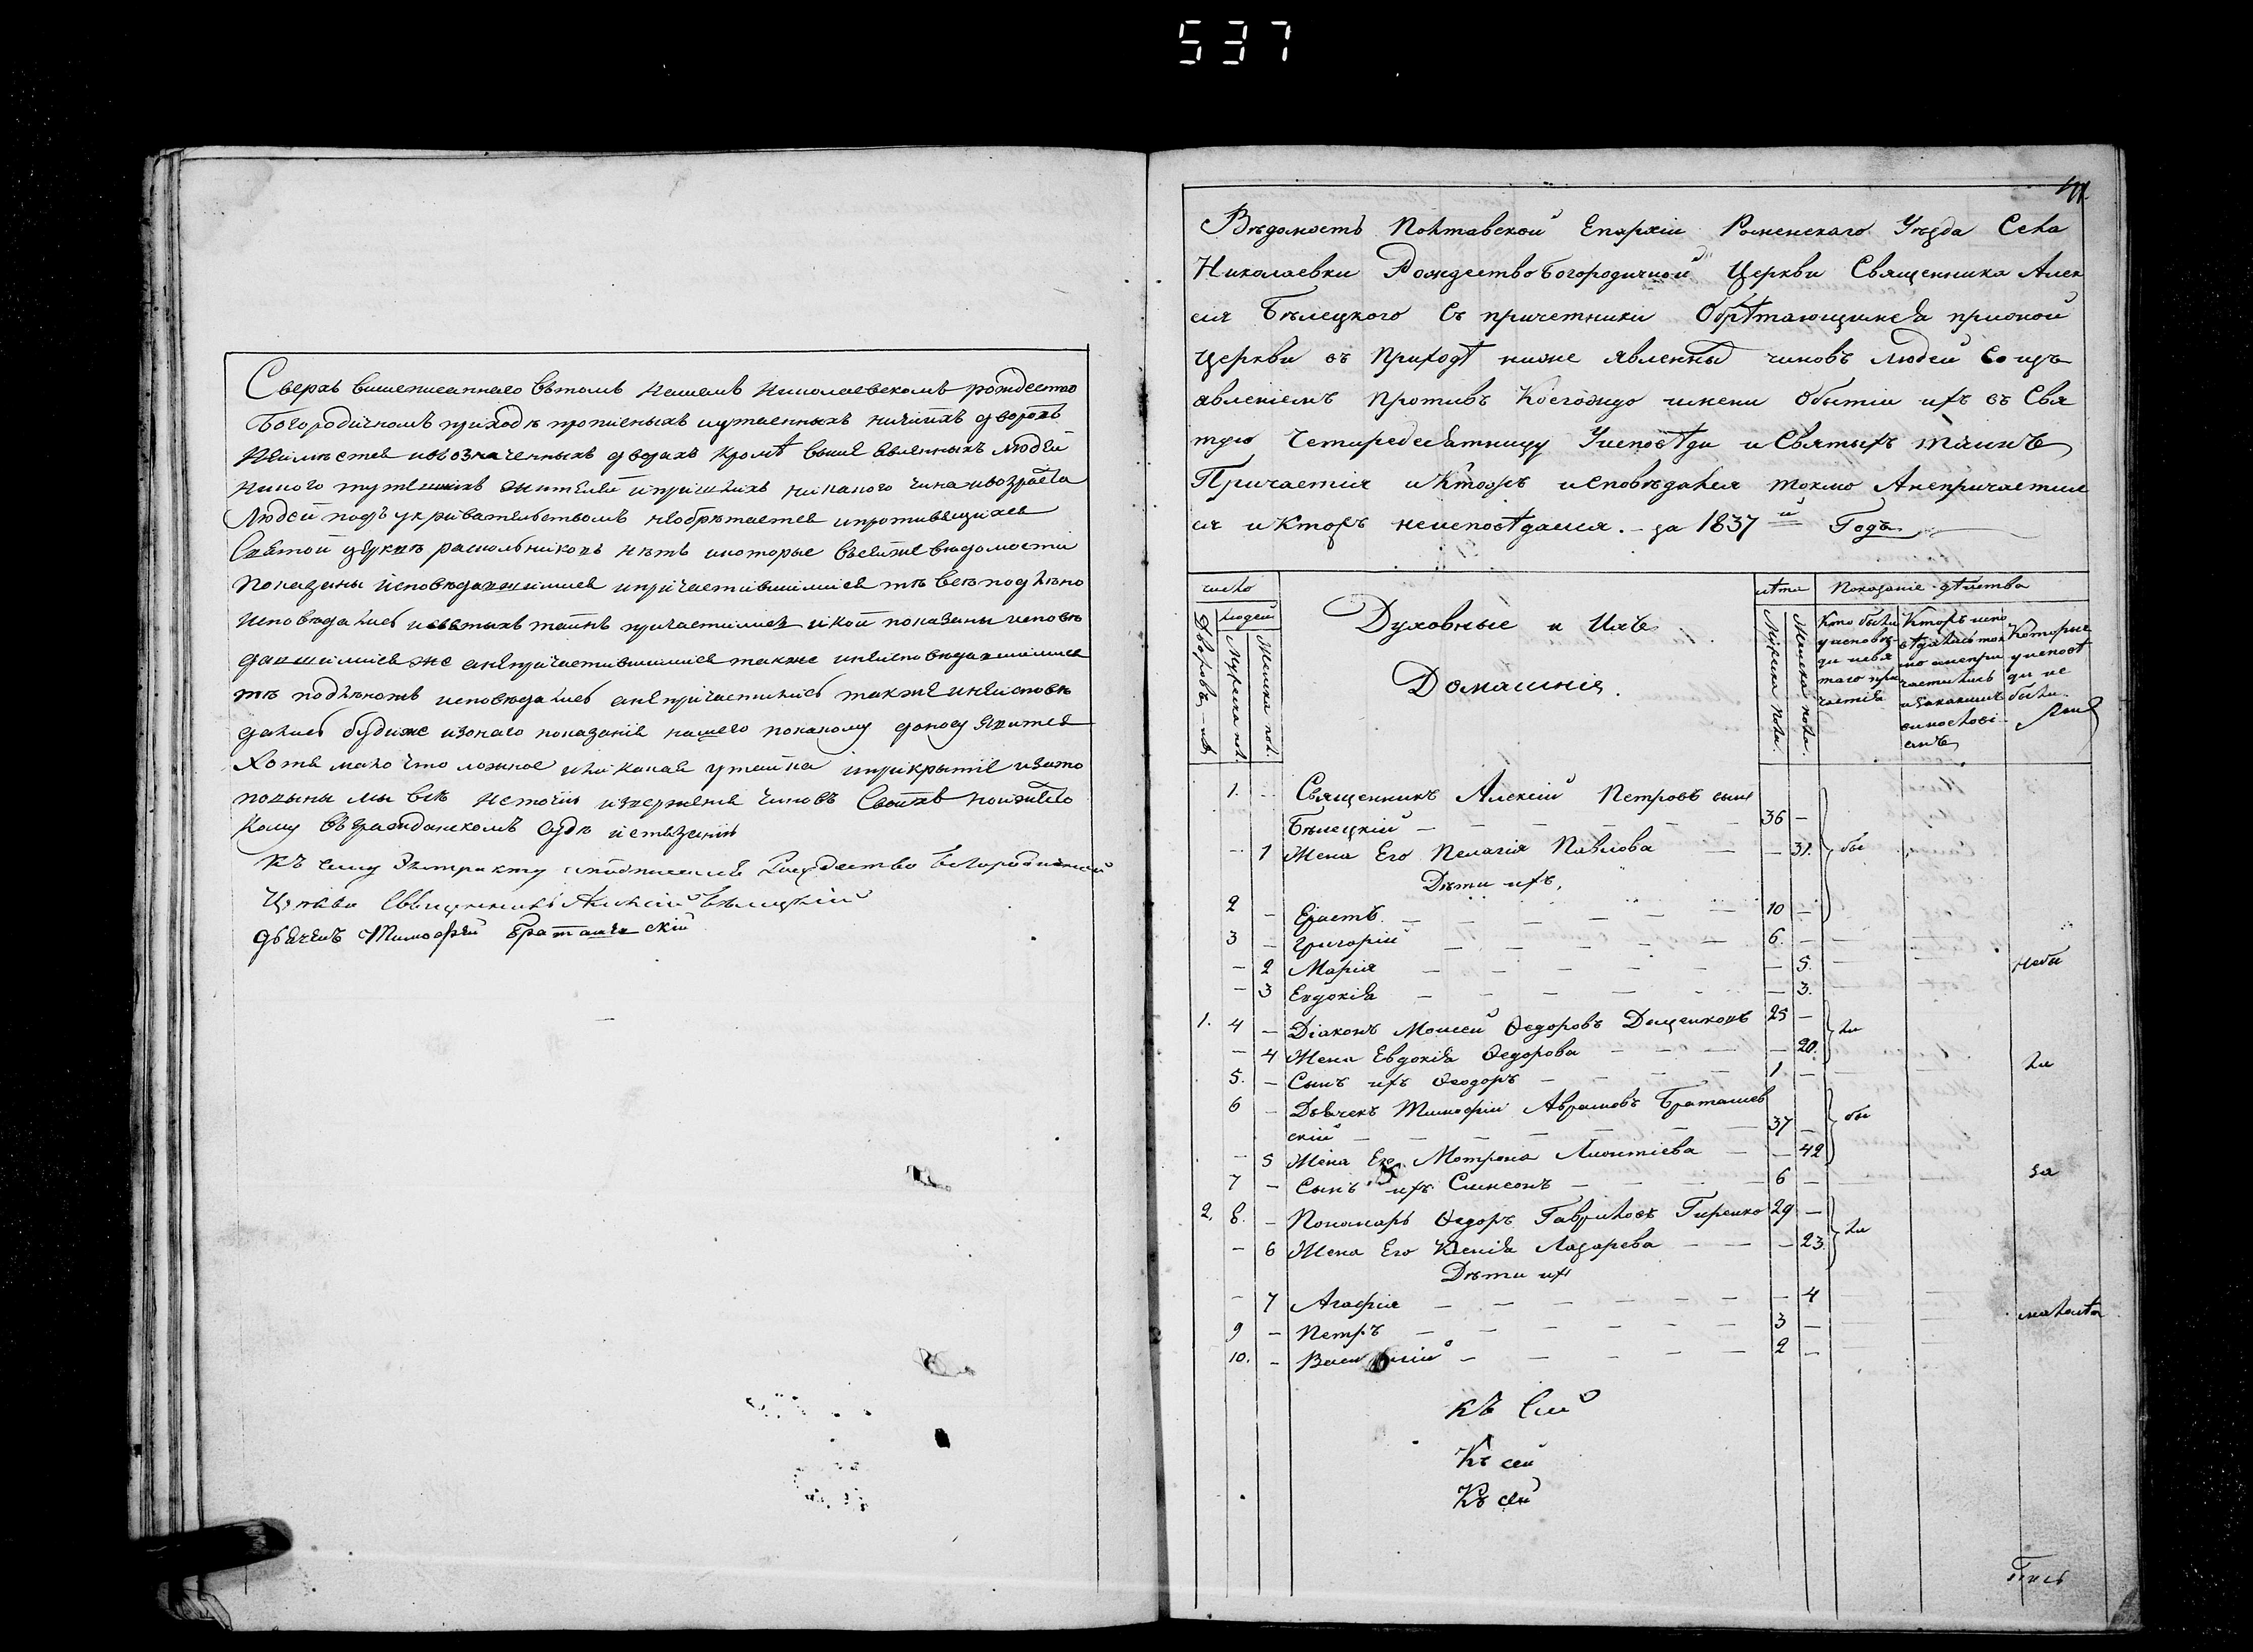 537
Сверхъ вишеписаннаго вътомъ нашемъ николаевскомъ рождество
Богородичномъ приходѣ прописныхъ иутаенныхъ ничіихъ дворовъ
Неимѣется ивозначенныхъ дворахъ кромѣ выше явленныхъ людей
никого тутешнихъ жителей ипришлихъ никакого чина ивозраста
Людей подъ укривательствомъ необрѣтается ипротивящихся
Святой церквѣ раскольниковъ нѣтъ икоторые всейже вѣдомости
показаны исповѣдавшимися ипричастившимися тѣ всѣ подлѣно
исповѣдались исвятыхъ таинъ причастились икои показаны исповѣ
давшимися же анепричастившимися также инеисповѣдавшимися
тѣ подлѣножъ исповѣдались анепричастились также инеисповѣ
дались будиже изонаго показанія нашего покакому доносу явится
Хотя мало что ложное или какая утайка иприкрытіе изато
повины мы всѣ неточію изверженія чиновъ Своихъ ноижесто
кому въгражданскомъ судѣ истязанію
Къ сему Экстракту подписался Рождество Богородичной
Церкви Священникъ Алексій Бѣлецкій
дьячекъ Тимофей Браташевскій
41.
Вѣдомость Полтавской Епархіи Роменскаго Уѣзда Села
Николаевки РождествоБогородичной Церкви Священника Алек
сія Бѣлецкого Съ причетники Обрѣтающимися прионой
церкви въ приходѣ ниже явленны чиновъ людей Со изъ
явленіемъ противъ Коегождо имени Обытіи ихъ въ Свя
тую Четиредесятницу Уисповѣди иСвятыхъ таинъ
Причастія иКтожъ исповѣдался токмо Анепричастил
ся иктожъ неисповѣдался. – за 1837й Годъ
число
людей
Дворовъ
Мужеска пол.
Женска пол.
Духовные и Ихъ
Домашнія.
лѣта
Мужеска пола.
Женска пола.
Показаніе дѣйства
Кто были
уисповѣ-
ди исвя
таго при
частія
Которые
уисповѣ
ди не
были.
1. – Священникъ Алексій Петровъ сынъ
Бѣлецкій – 36 –
– 1 Жена Его Пелагія Павлова – 31. бы
Дѣти ихъ,
2 – Ерастъ – 10 –
3 – Григорій – 6. –
– 2 Марія – 5. небы
– 3 Евдокія – 3.
1. 4 – Діаконъ Моисей Ѳедоровъ Дещенковъ 25 – ли
– 4 Жена Евдокія Ѳедорова – 20.
5. – Сынъ ихъ Ѳеодоръ – 1 – ли
6 – Дьячекъ Тимофій Аврамовъ Браташев
скій – 37 – бы
– 5 Жена Его Мотрона Леонтіева – 42
7 – Сынъ ихъ Симеонъ – 6 – за
2. 8. – Пономарь Ѳедоръ Гавриловъ Гиренко 29 – ли
– 6 Жена Его Ксенія Лазарева – 23.
Дѣти ихъ
– 7 Агафія – 4 малолѣта
9 – Петръ – 3 –
10. – Василій – 2 –
Къ Сей
Къ сей
Къ сей